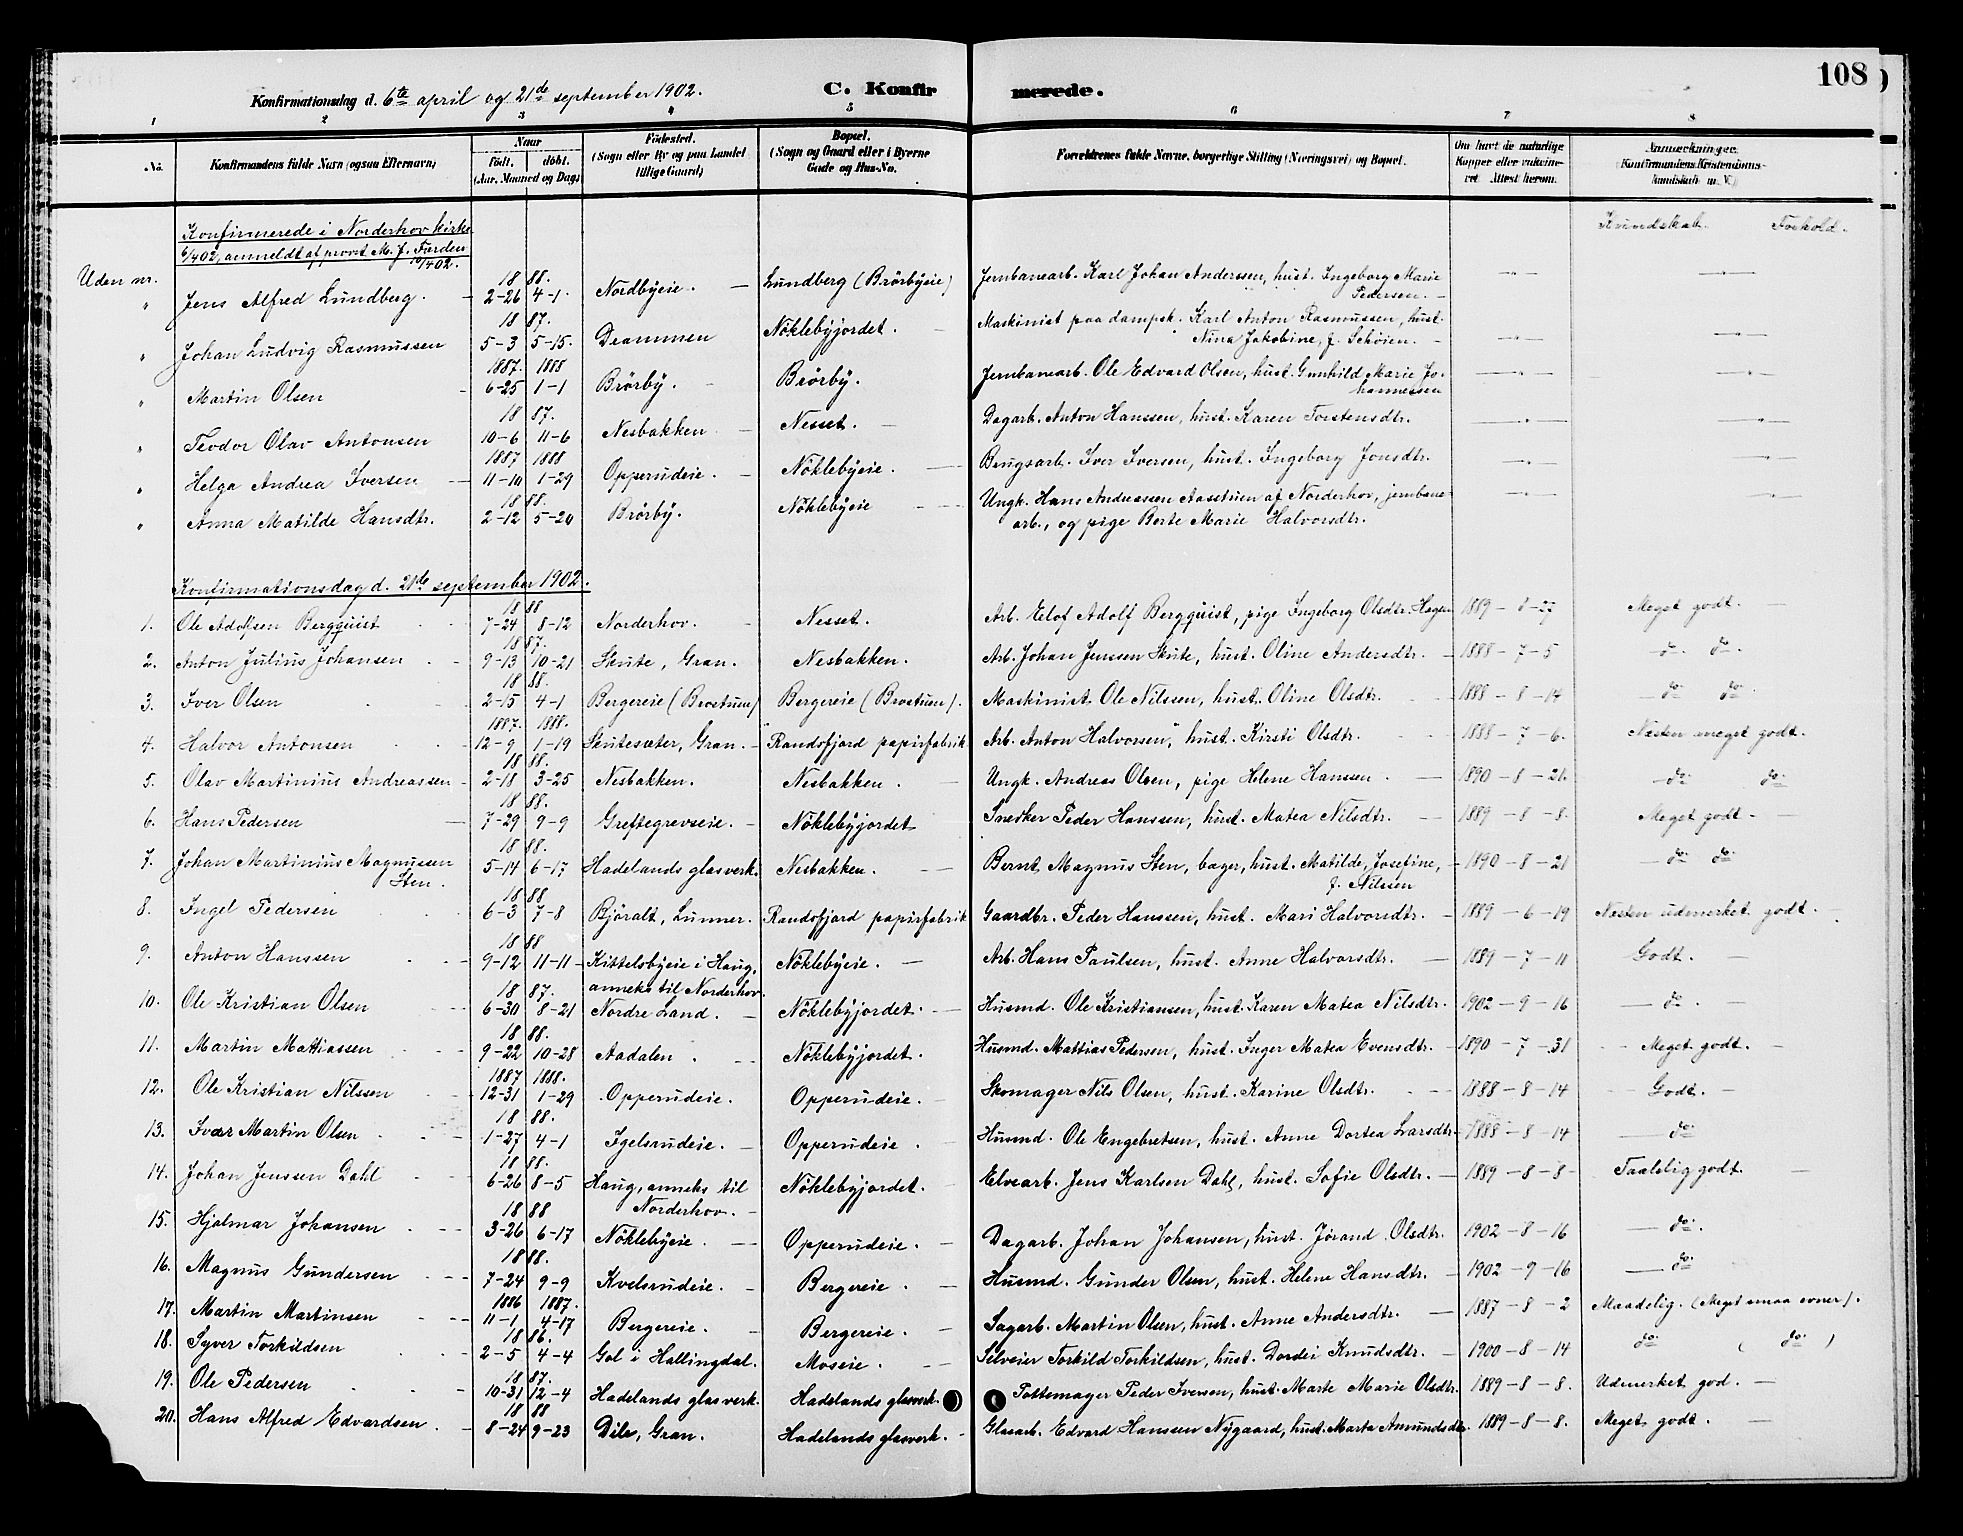 108
Konfirmationsdag d. 6te april og 21de september 1902. C. Konfirmerede.
1 2 3 4 5 6 7 8
No. Konfirmandens fulde Navn (ogsaa Efternavn) Naar født. døbt. (Aar, Maaned og Dag) Fødested. (Sogn eller By og paa Landet tillige Gaard) Bopæl. (Sogn og Gaard eller i Byerne Gade og Hus-No. Forældrenes fulde Navne, borgerlige Stilling (Næringsvei) og Bopæl. Om havt de naturlige Kopper eller vakcineret. Attest herom. Anmerkninger. (Konfirmandens Kristendomskundskab m. V.)
Kundskab. Forhold.
Konfirmerede i Norderhov kirke
6/4 02, anmeldt af provst M. J. Færden
10/4 02.
Uden nr.
" Jens Alfred Lundberg. 1888. 2-26 4-1. Nordbyeie. Lundberg (Brörbyeie) Jernbanearb. Karl Johan Andersen, hust. Ingeborg Marie Pedersen. — " — — " —
" Johan Ludvig Rasmussen 1887. 5-3 5-15. Drammen Nöklebyjordet. Maskinist paa dampsk. Karl Anton Rasmussen, hust. Nina Jakobine, f. Schöien. — " — — " —
" Martin Olsen 1887. 1888 6-25 1-1 Brörby. Brörby. Jernbanearb. Ole Edvard Olsen, hust. Gunhild Marie Johannessen — " — — " —
" Teodor Olav Antonsen 1887. 10-6 11-6 Nesbakken. Nesset. Dagarb. Anton Hanssen, hust. Karen Torstensdtr. — " — — " —
" Helga Andrea Iversen 1887 1888 11-10 1-29 Opperudeie. Nöklebyeie. Brugsarb. Iver Iversen, hust. Ingeborg Jonsdtr. — " — — " —
" Anna Matilde Hansdtr. 1888. 2-12 5-20 Brörby. Nöklebyeie Ungk. Hans Andreassen Aasetuen af Norderhov, jernbanearb., og pige Berte Marie Halvorsdtr. — " — — " —
Konfirmationsdag d. 21de september 1902.
1. Ole Adolfsen Bergquist 1888 7-24 8-12 Norderhov. Nesset. Arb. Elof Adolf Bergquist, pige Ingeborg Olsdtr. Hagen 1889-8-27 Meget godt.
2. Anton Julius Johansen 1887. 9-13 10-21 Skute, Gran. Nesbakken. Arb. Johan Jenssen Skute, hust. Oline Andersdtr. 1888-7-5 do. do.
3. Iver Olsen 1888. 2-15 4-1 Bergereie (Brostuen) Bergereie (Brostuen). Maskinist Ole Nilssen, hust. Oline Olsdtr. 1888-8-14 do do.
4. Halvor Antonsen 1887. 1888. 12-9 1-19 Skutesæter, Gran. Randsfjord papirfabrik Arb. Anton Halvorsen, hust. Kirsti Olsdtr. 1888-7-6. Næsten meget godt.
5. Olav Martinius Andreassen 1888. 2-18 3-25 Nesbakken. Nesbakken. Ungk. Andreas Olsen, pige Helene Hanssen. 1890-8-21. do. do.
6. Hans Pedersen 1888. 7-29 9-9 Greftegrevseie. Nöklebyjordet Snedker Peder Hanssen, hust. Matea Nilsdtr. 1889-8-8. Meget godt.
7. Johan Martinius Magnussen Sten. 1888. 5-14 6-17 Hadelands glasverk. Nesbakken. Bernt Magnus Sten, bager, hust. Matilde Josefine, f. Nilssen 1890-8-21 do. do.
8. Ingel Pedersen 1888 6-3 7-8 Björalt, Lunner. Randsfjord papirfabrik Gaardbr. Peder Hanssen, hust. Mari Halvorsdtr. 1889-6-19 Nesten udmerket godt.
9. Anton Hanssen 1888 9-12 11-11 Kittelsbyeie i Haug, anneks til Norderhov. Nöklebyeie. Arb. Hans Paulsen, hust. Anne Halvorsdtr. 1889-7-11 Godt.
10. Ole Kristian Olsen 1887. 6-30 8-21 Nordre Land. Nöklebyjordet. Husmd. Ole Kristiansen, hust. Karen Matea Nilsdtr. 1902-9-16 do.
11. Martin Mattiassen 1888. 9-22 10-28 Aadalen. Nöklebyjordet. Husmd. Mattias Pedersen, hust. Inger Matea Evensdtr. 1890-7-31 Meget godt.
12. Ole Kristian Nilssen 1887 1888. 12-31 1-29 Opperudeie. Opperudeie. Skomager Nils Olsen, hust. Karine Olsdtr. 1888-8-14 Godt.
13. Ivar Martin Olsen 1888. 1-27 4-1 Igelsrudeie. Opperudeie. Husmd. Ole Engebretsen, hust. Anne Dortea Larsdtr. 1888-8-14 do.
14. Johan Jenssen Dahl 1888. 6-26 8-5 Haug, anneks til Norderhov. Nöklebyjordet. Elvearb. Jens Karlsen Dahl, hust. Sofie Olsdtr. 1889-8-8 Taalelig godt.
15. Hjalmar Johansen 1888 3-26 6-17 Nöklebyeie. Opperudeie. Dagarb. Johan Johansen, hust. Jörand Olsdtr. 1902-8-16 do.
16. Magnus Gundersen 1888. 7-24 9-9 Kvelsrudeie. Bergereie. Husmd. Gunder Olsen, hust. Helene Hansdtr. 1902-9-16 do.
17. Martin Martinsen 1886 1887. 11-1 4-17 Bergereie. Bergereie. Sagarb. Martin Olsen, hust. Anne Andersdtr. 1887-8-2 Maadelig. (Meget smaa evner).
18. Syver Torkildsen 1886. 2-5 4-4 Gol i Hallingdal. Moseie. Selveier Torkild Torkildsen, hust. Dordei Knudsdtr. 1900-8-14 do. ( do. )
19. Ole Pedersen 1887. 10-31 12-4 Hadelands glasverk. Hadelands glasverk. Pottemager Peder Iversen, hust. Marte Marie Olsdtr. 1889-8-8. Udmerket god.
20. Hans Alfred Edvardsen. 1888 8-24 9-23 Dile, Gran. Hadelands glasverk. Glasarb. Edvard Hanssen Nygaard, hust. Marta Amundsdtr. 1889-8-8. Meget godt.